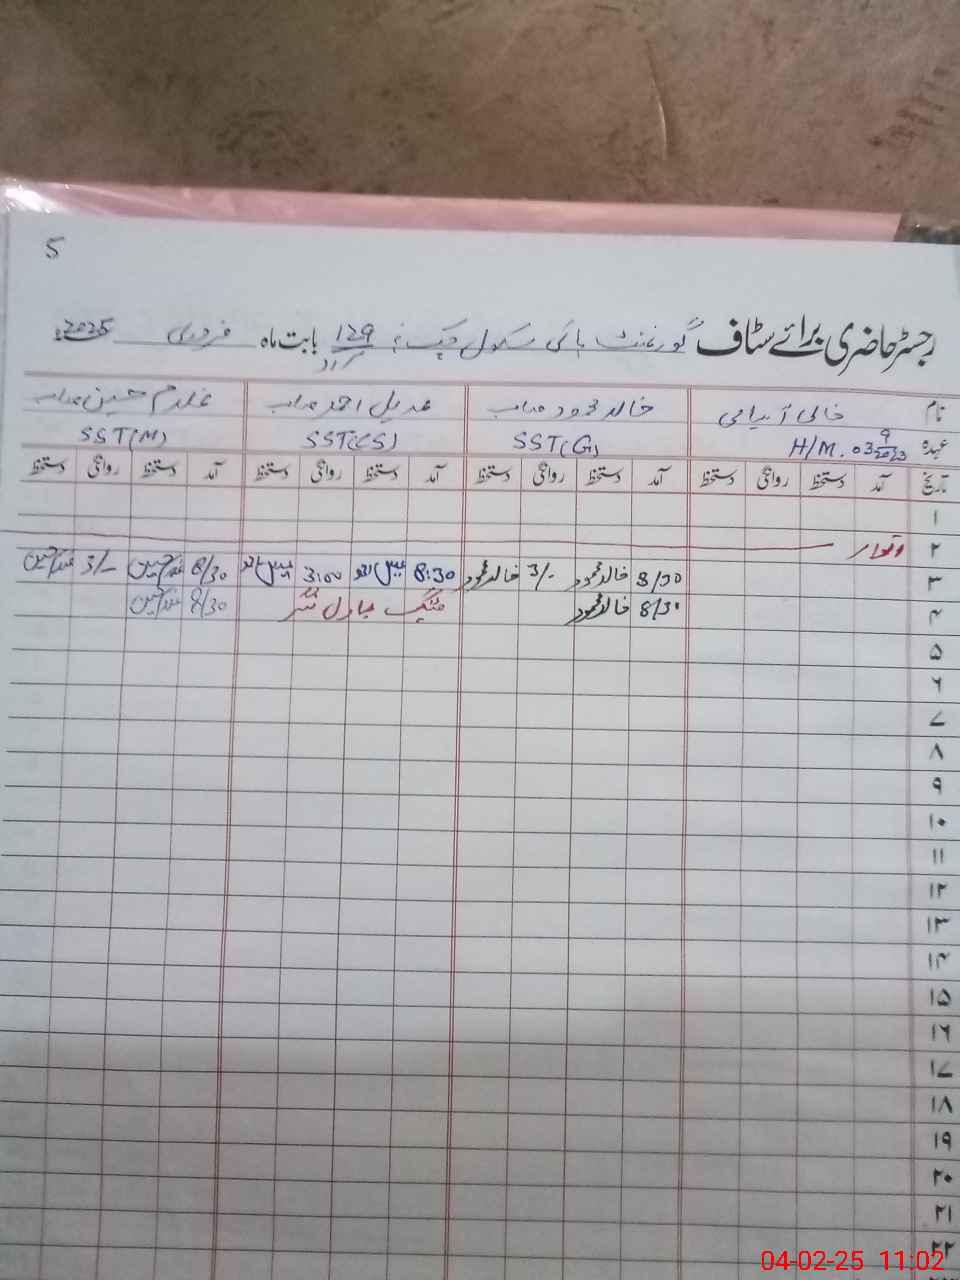 5
رجسٹر حاضری برائے سٹاف گورنمنٹ ہائی سکول چک نمبر 129 بابت ماہ فروری 2025ء
نام خالی آسامی خالد محمود صاحب عدیل احمد صاحب غلام حسین صاحب
عہدہ H/M. 03 9 2023 SST(G) SST(CS) SST(M)
تاریخ آمد دستخط روانگی دستخط آمد دستخط روانگی دستخط آمد دستخط روانگی دستخط آمد دستخط روانگی دستخط
۱
۲ اتوار
۳ 8/30 خالد محمود 3/- خالد محمود 8:30 3:00 8/30 3/-
۴ 8/30 خالد محمود میٹنگ 8/30
۵
۶
۷
۸
۹
۱۰
۱۱
۱۲
۱۳
۱۴
۱۵
۱۶
۱۷
۱۸
۱۹
۲۰
۲۱
۲۲
04-02-25 11:02